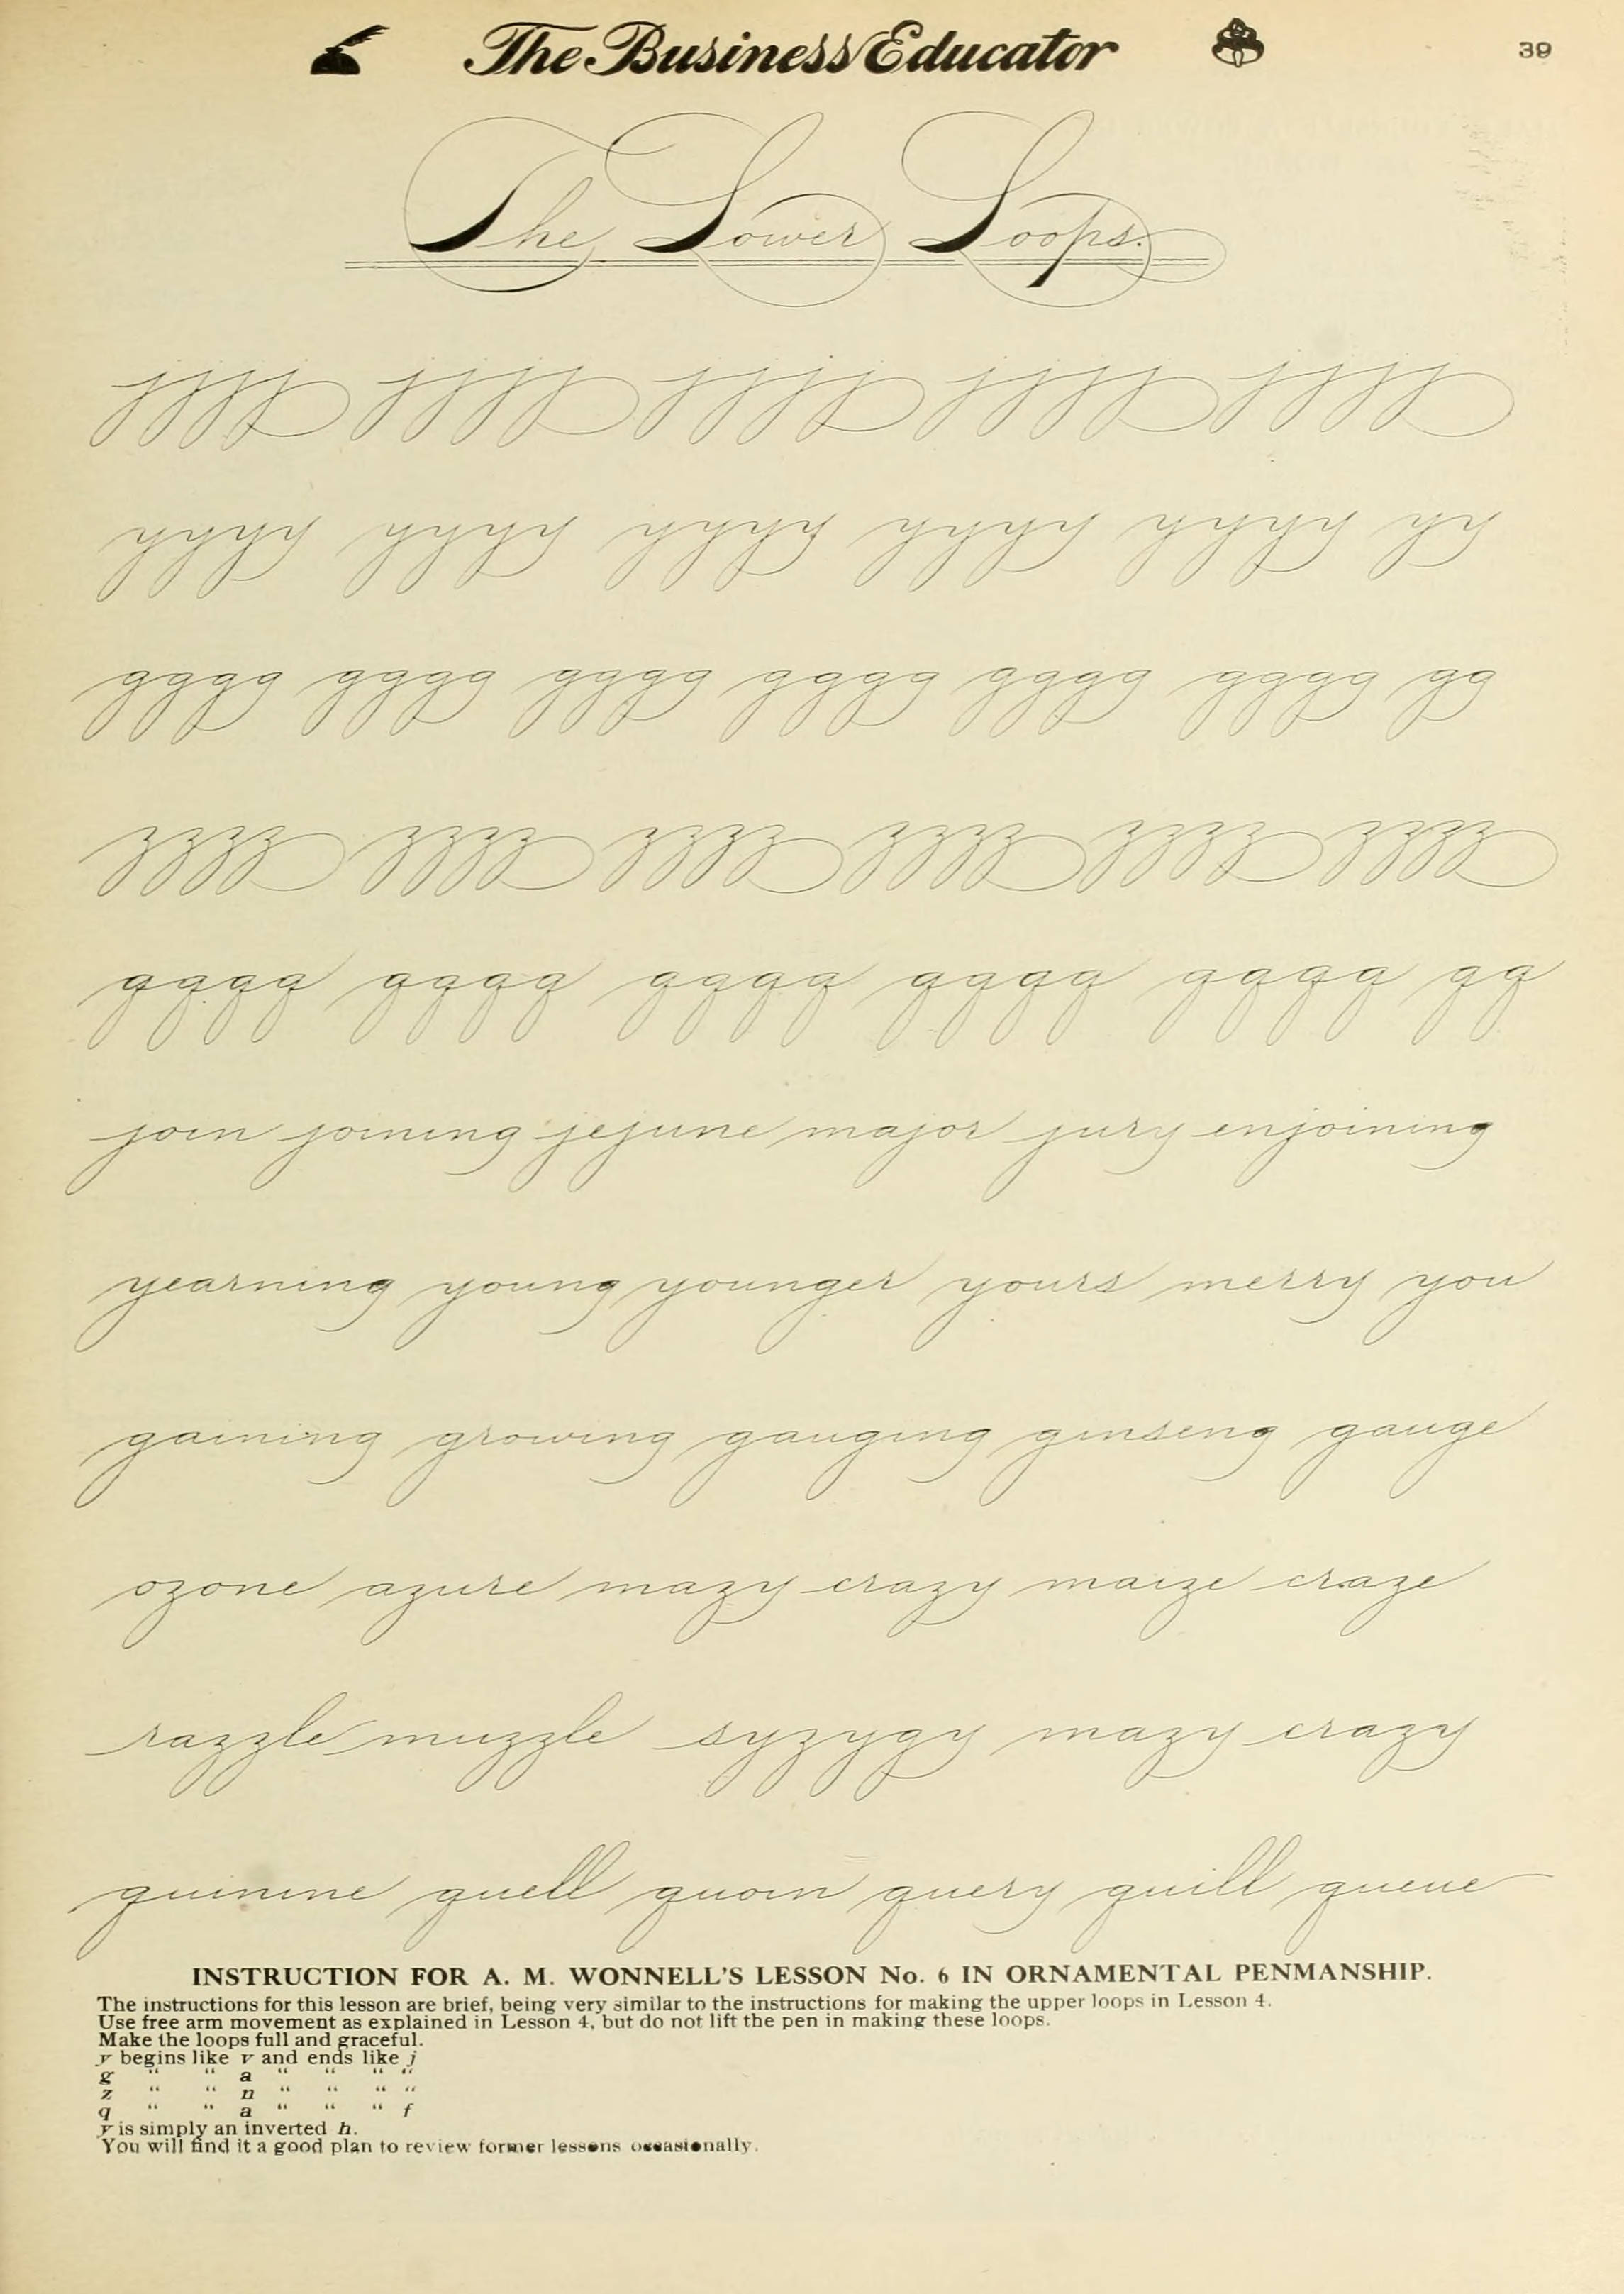 The Business Educator 39
The Lower Loops.
jjjj jjjj jjjj jjjj jjjj
yyyy yyyy yyyy yyyy yyyy yy
gggg gggg gggg gggg gggg gggg gg
zzzz zzzz zzzz zzzz zzzz zzzz
qqqq qqqq qqqq qqqq qqqq qq
join joining jejune major jury enjoining
yearning young younger yours merry you
gaining growing gauging ginseng gauge
ozone azure mazy crazy maize craze
razzle muzzle syzygy mazy crazy
quinine quell quoin query quill queue
INSTRUCTION FOR A. M. WONNELL'S LESSON No. 6 IN ORNAMENTAL PENMANSHIP.
The instructions for this lesson are brief, being very similar to the instructions for making the upper loops in Lesson 4.
Use free arm movement as explained in Lesson 4, but do not lift the pen in making these loops.
Make the loops full and graceful.
y begins like v and ends like j
g " " a " " " "
z " " n " " " "
q " " a " " " f
y is simply an inverted h.
You will find it a good plan to review former lessons occasionally.